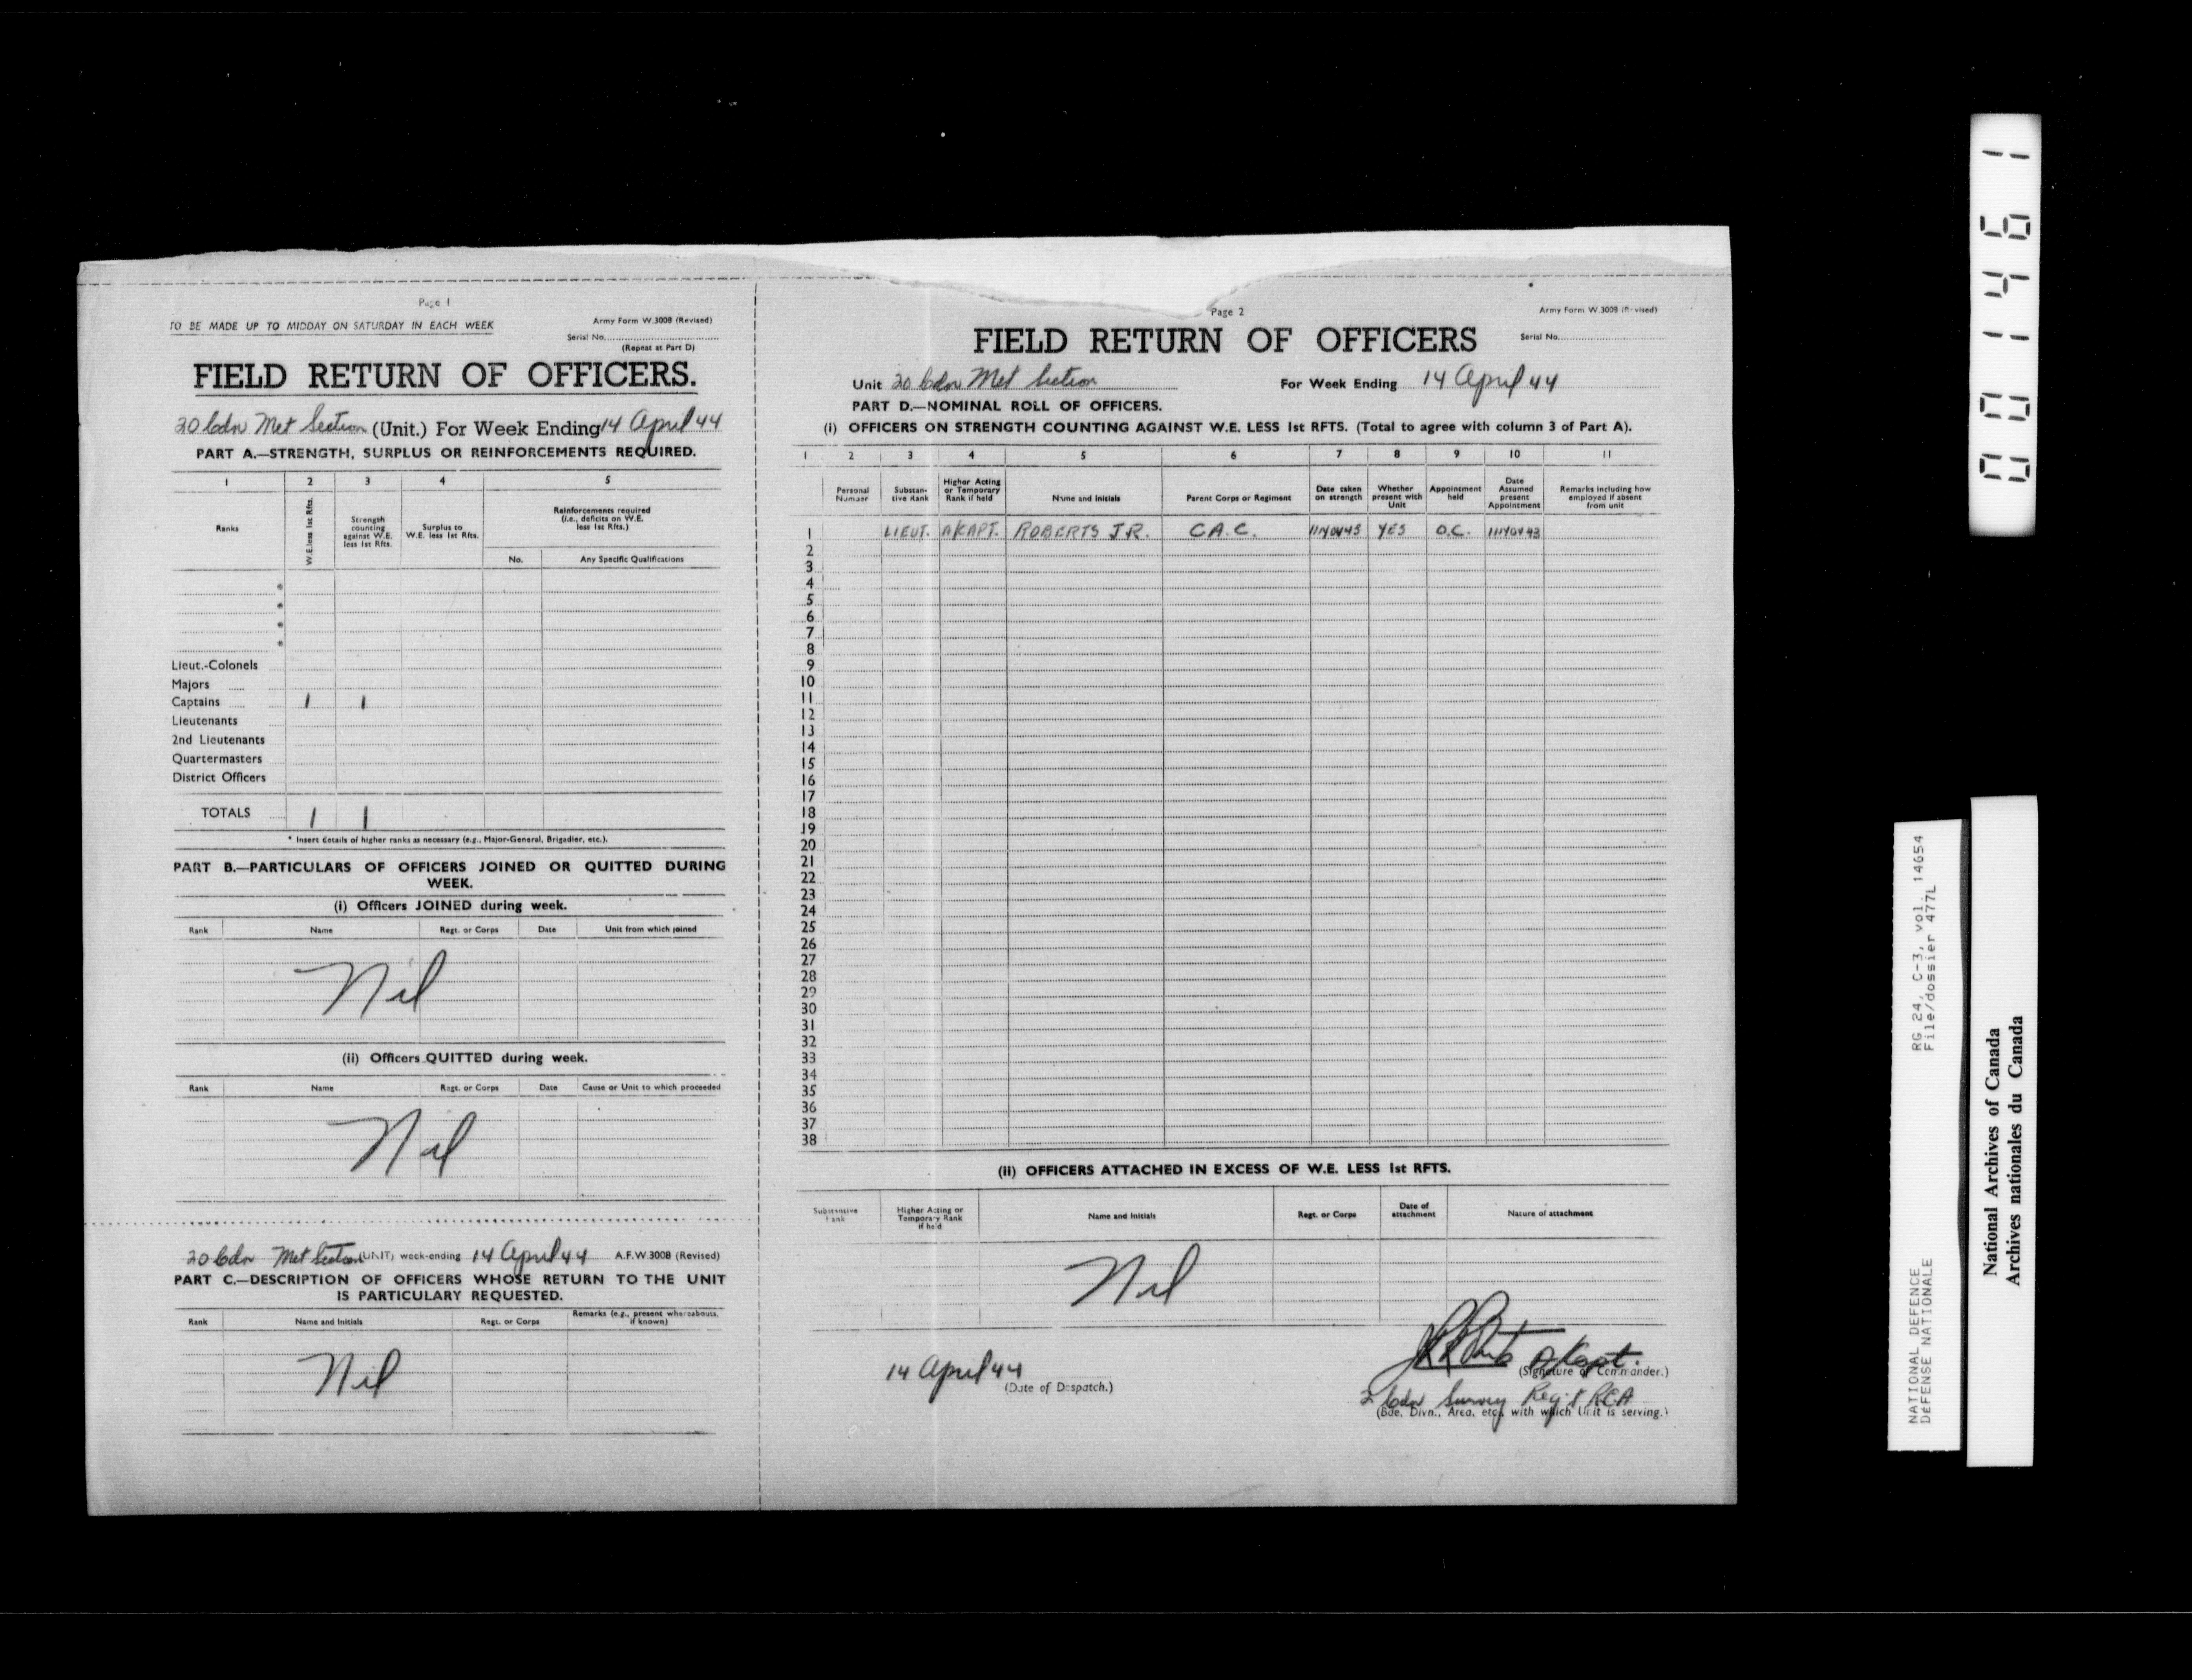 Page 1
TO BE MADE UP TO MIDDAY ON SATURDAY IN EACH WEEK
Army Form W.3008 (Revised)
Serial No.
(Repeat at Part D)
FIELD RETURN OF OFFICERS.
20 Cdn Met Section (Unit.) For Week Ending 14 April 44
PART A.—STRENGTH, SURPLUS OR REINFORCEMENTS REQUIRED.
1 2 3 4 5
Ranks
W.E. less 1st Rfts.
Strength counting against W.E. less 1st Rfts.
Surplus to W.E. less 1st Rfts.
Reinforcements required (i.e., deficits on W.E. less 1st Rfts.)
No. Any Specific Qualifications
*
*
*
*
Lieut.-Colonels
Majors
Captains 1 1
Lieutenants
2nd Lieutenants
Quartermasters
District Officers
TOTALS 1 1
* Insert details of higher ranks as necessary (e.g., Major-General, Brigadier, etc.).
PART B.—PARTICULARS OF OFFICERS JOINED OR QUITTED DURING
WEEK.
(i) Officers JOINED during week.
Rank Name Regt. or Corps Date Unit from which joined
Nil
(ii) Officers QUITTED during week.
Rank Name Regt. or Corps Date Cause or Unit to which proceeded
Nil
20 Cdn Met Section (UNIT) week-ending 14 April 44 A.F.W.3008 (Revised)
PART C.—DESCRIPTION OF OFFICERS WHOSE RETURN TO THE UNIT
IS PARTICULARY REQUESTED.
Rank Name and Initials Regt. or Corps Remarks (e.g., present whereabouts, if known)
Nil
Page 2
Army Form W.3008 (Revised)
FIELD RETURN OF OFFICERS
Serial No.
Unit 20 Cdn Met Section For Week Ending 14 April 44
PART D.—NOMINAL ROLL OF OFFICERS.
(i) OFFICERS ON STRENGTH COUNTING AGAINST W.E. LESS 1st RFTS. (Total to agree with column 3 of Part A).
1 2 3 4 5 6 7 8 9 10 11
Personal Number
Substantive Rank
Higher Acting or Temporary Rank if held
Name and Initials
Parent Corps or Regiment
Date taken on strength
Whether present with Unit
Appointment held
Date Assumed present Appointment
Remarks including how employed if absent from unit
1 LIEUT. A/CAPT. ROBERTS J.R. C.A.C. 11 NOV 43 YES O.C. 11 NOV 43
2
3
4
5
6
7
8
9
10
11
12
13
14
15
16
17
18
19
20
21
22
23
24
25
26
27
28
29
30
31
32
33
34
35
36
37
38
(ii) OFFICERS ATTACHED IN EXCESS OF W.E. LESS 1st RFTS.
Substantive Rank
Higher Acting or Temporary Rank if held
Name and Initials
Regt. or Corps
Date of attachment
Nature of attachment
Nil
14 April 44
(Date of Despatch.)
A/Capt.
(Signature of Commander.)
2 Cdn Survey Regt RCA
(Bde, Divn., Area, etc, with which Unit is serving.)
001461
RG 24, C-3, vol. 14654
File/dossier 477L
NATIONAL DEFENCE
DÉFENSE NATIONALE
National Archives of Canada
Archives nationales du Canada